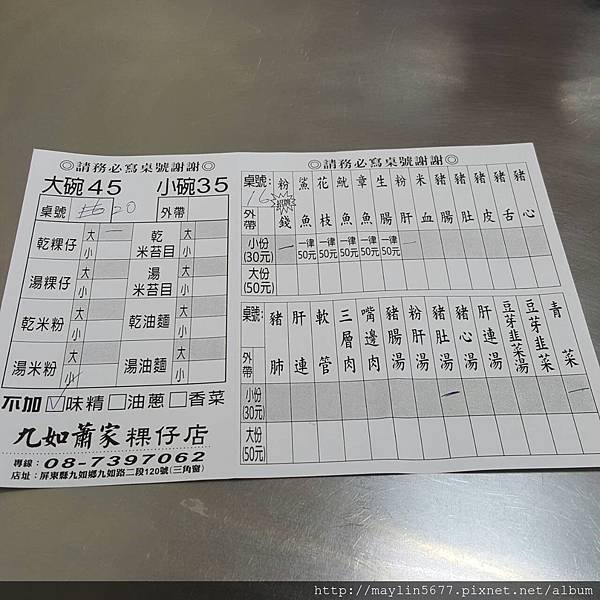 ◎請務必寫桌號謝謝◎
大碗45 小碗35
桌號 20 外帶
乾粿仔 大 小 乾米苔目 大 小
湯粿仔 大 小 湯米苔目 大 小
乾米粉 大 小 乾油麵 大 小
湯米粉 大 小 湯油麵 大 小
不加 味精 油蔥 香菜
九如蕭家粿仔店
專線：08-7397062
店址：屏東縣九如鄉九如路二段120號(三角窗)
◎請務必寫桌號謝謝◎
桌號: 16 外帶 粉錢 鯊魚 花枝 魷魚 章魚 生腸 粉肝 米血 豬腸 豬肚 豬皮 豬舌 豬心
小份(30元) 一律50元 一律50元 一律50元 一律50元
大份(50元)
桌號: 外帶 豬肺 肝連 軟管 三層肉 嘴邊肉 豬腸湯 粉肝湯 豬肚湯 豬心湯 肝連湯 豆芽韭菜湯 豆芽韭菜 青菜
小份(30元)
大份(50元)
http://maylin5677.pixnet.net/album